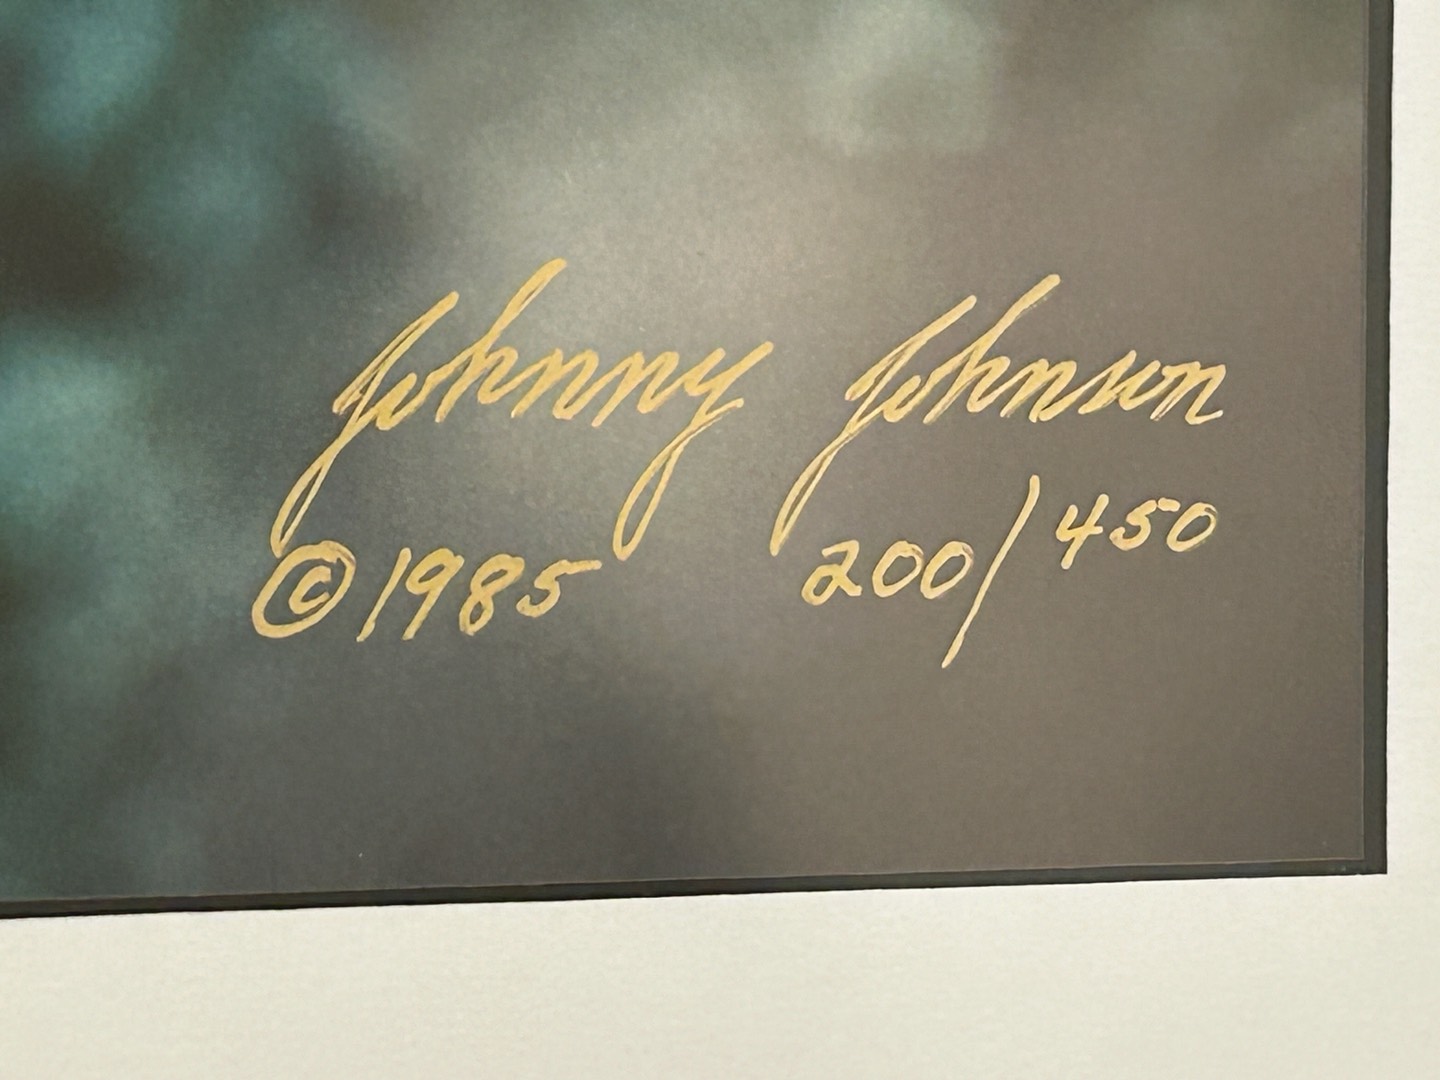 Johnny Johnson
©1985 200/450